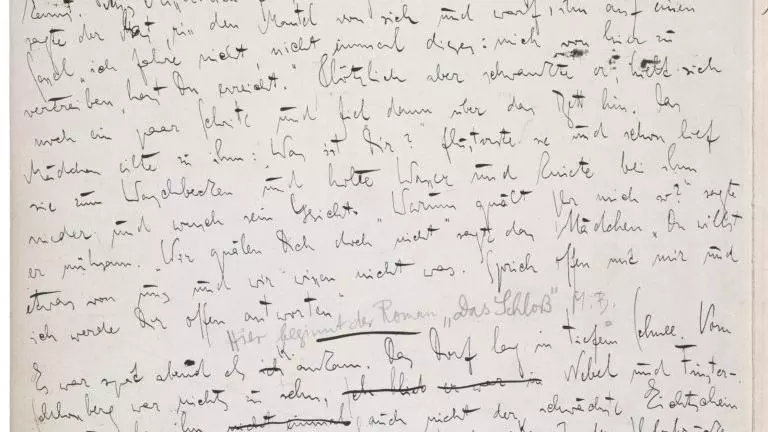 sagte der Gast, riß den Mantel von sich und warf ihn auf einen
"ich fahre nicht, nicht einmal dieses: mich von hier zu
vertreiben, hast Du erreicht." Plötzlich aber schwankte er hielt sich
noch ein paar Schritte und fiel dann über das Bett hin. Das
Mädchen eilte zu ihm: Was ist Dir?" flüsterte sie und schon lief
sie zum Waschbecken und holte Wasser und kniete bei ihm
nieder und wusch sein Gesicht. "Warum quält Ihr mich so?" sagte
er mühsam. "Wir quälen Dich doch nicht" sagt das Mädchen "Du willst
etwas von uns und wir wissen nicht was. Sprich offen mit mir und
ich werde Dir offen antworten"
Hier beginnt der Roman "Das Schloß" M.B.
Es war spät abend als ich ankam. Das Dorf lag in tiefem Schnee. Vom
Schlossberg war nichts zu sehn, ich blieb er war in Nebel und Finster-
ihn nicht einmal auch nicht der schwächste Lichtschein